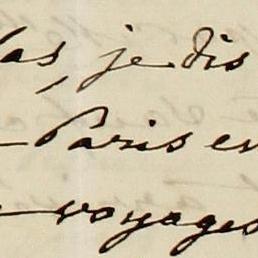 las, je dis
Paris en
voyages